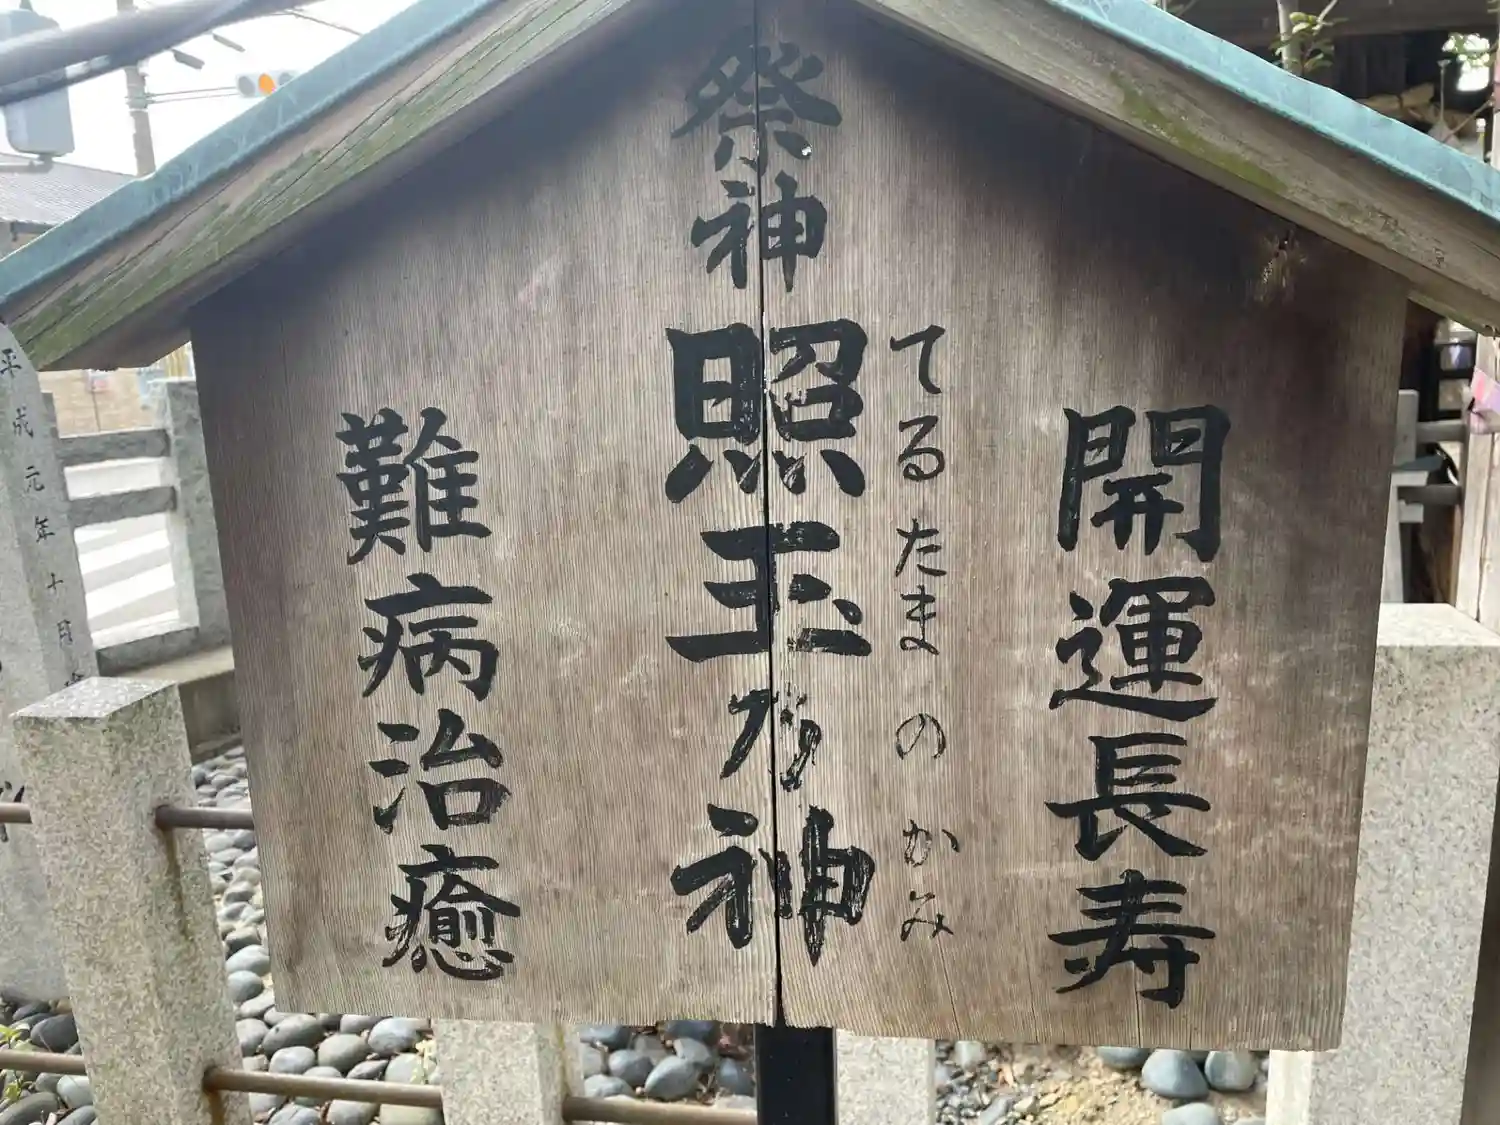 開運長寿
てるたまのかみ
祭神
照玉乃神
難病治癒
平成元年十月